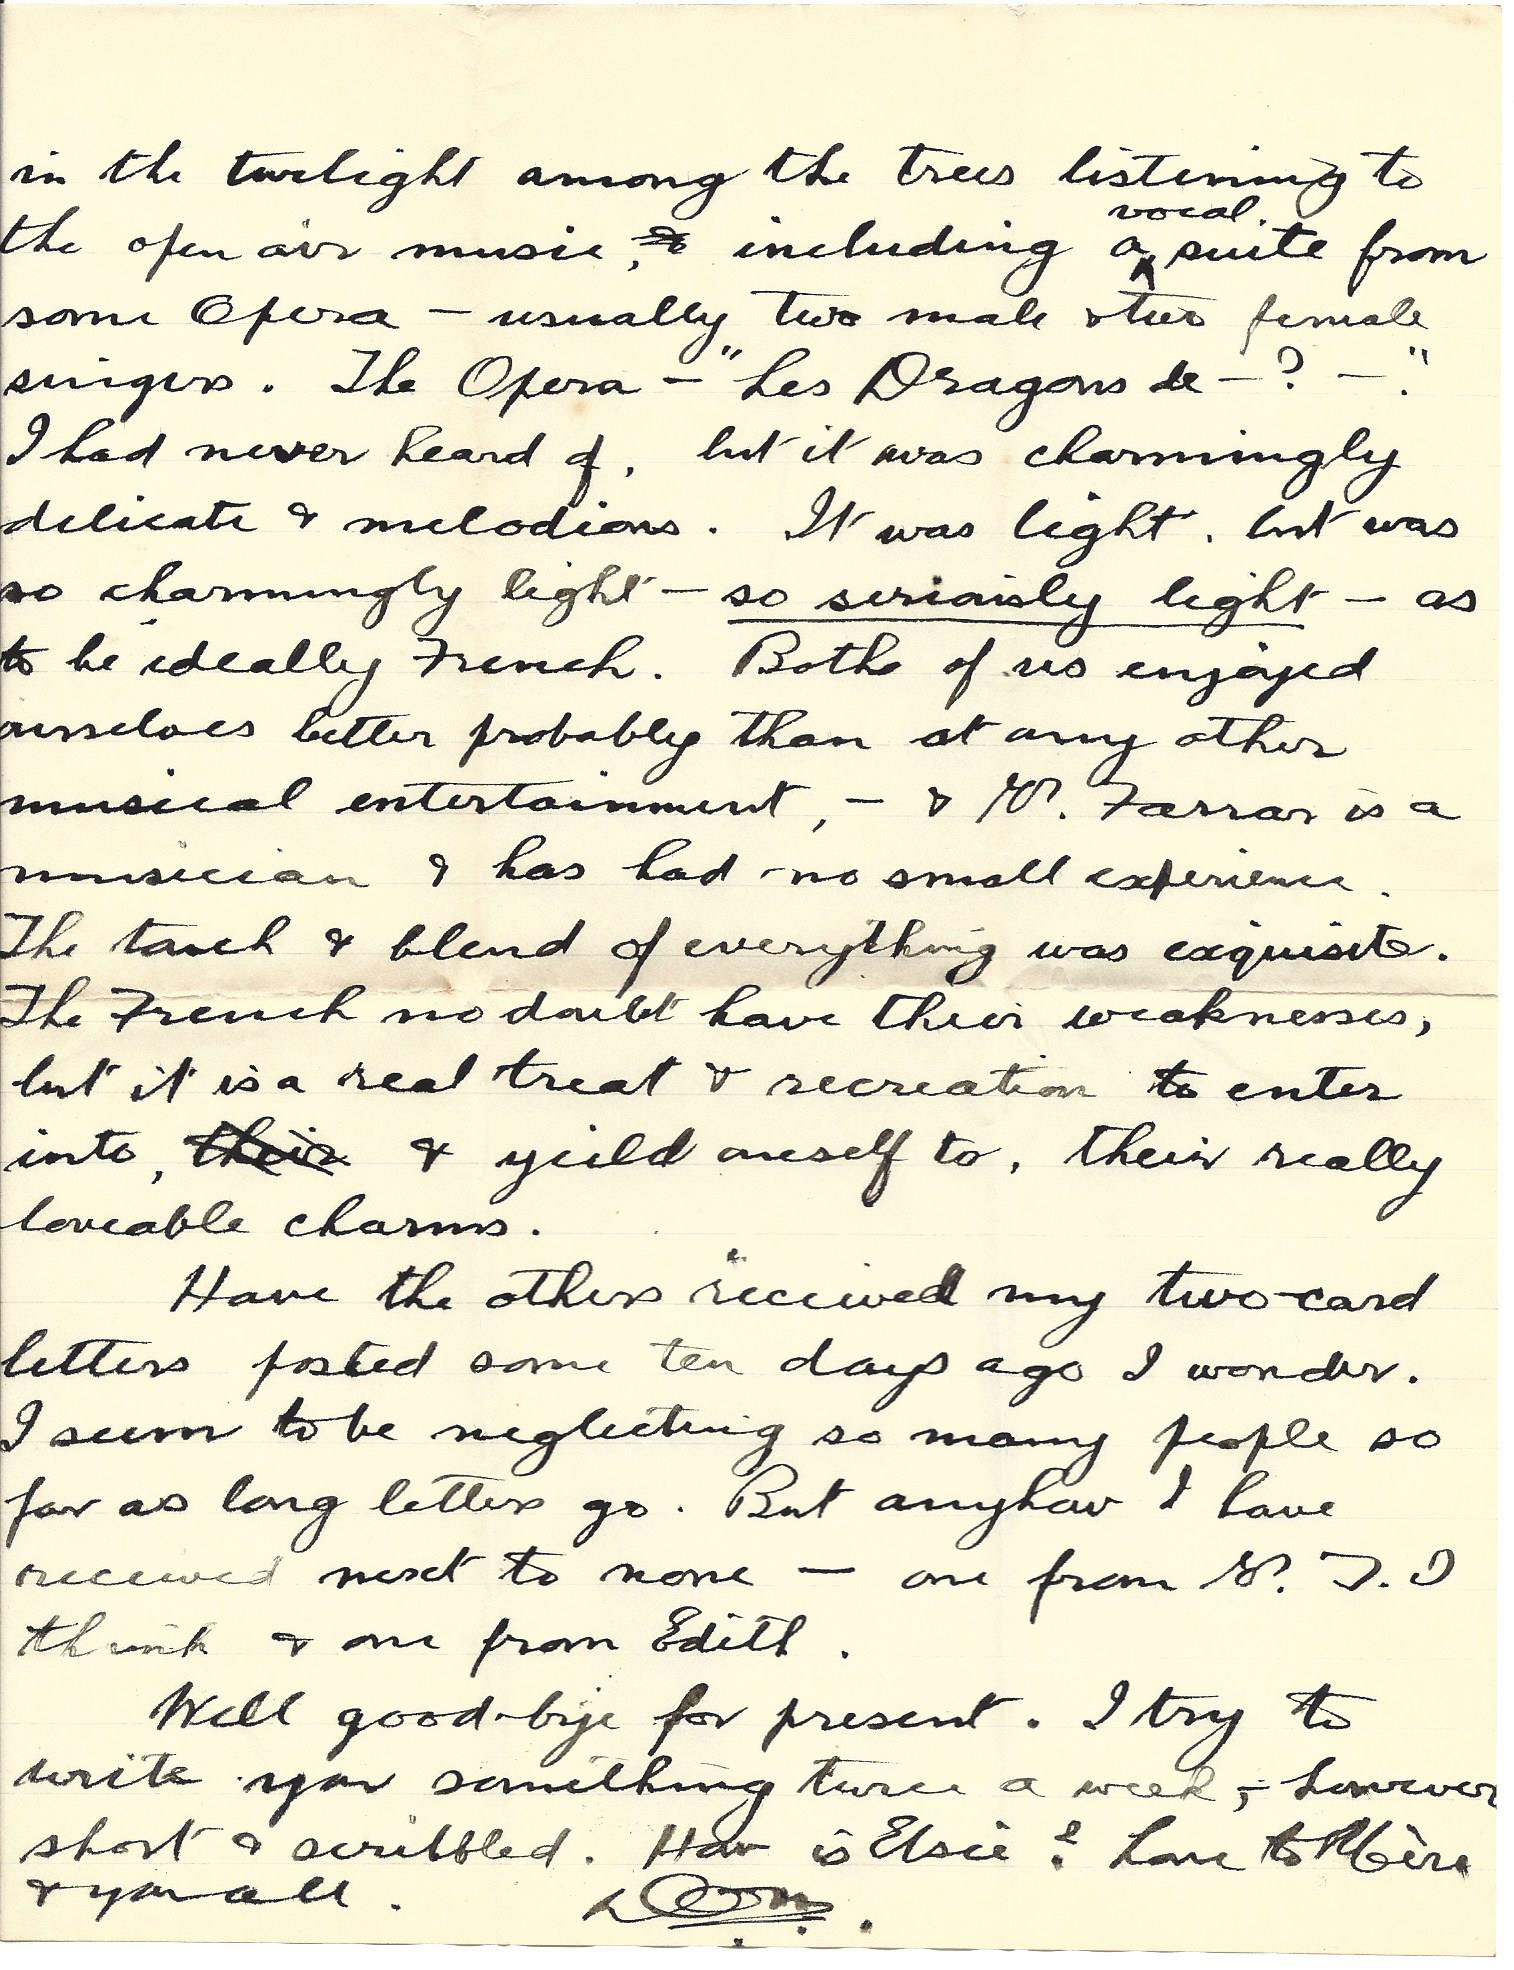 in the twilight among the trees listening to
the open air music, & including a vocal suite from
some Opera — usually two male & two female
singers. The Opera — "Les Dragons de — ? — ."
I had never heard of, but it was charmingly
delicate & melodious. It was light, but was
so charmingly light — so seriously light — as
to be ideally French. Both of us enjoyed
ourselves better probably than at any other
musical entertainment, — & Farrar is a
musician & has had no small experience.
The touch & blend of everything was exquisite.
The French no doubt have their weaknesses,
but it is a real treat & recreation to enter
into, their & yield oneself to, their really
loveable charms.
Have the others received my two-card
letters posted some ten days ago I wonder.
I seem to be neglecting so many people so
far as long letters go. But anyhow I have
received next to none — one from I
think & one from Edith.
Well good-bye for present. I try to
write you something twice a week, — however
short & scribbled. How is Elsie? Love to Mère
& you all. Dom.